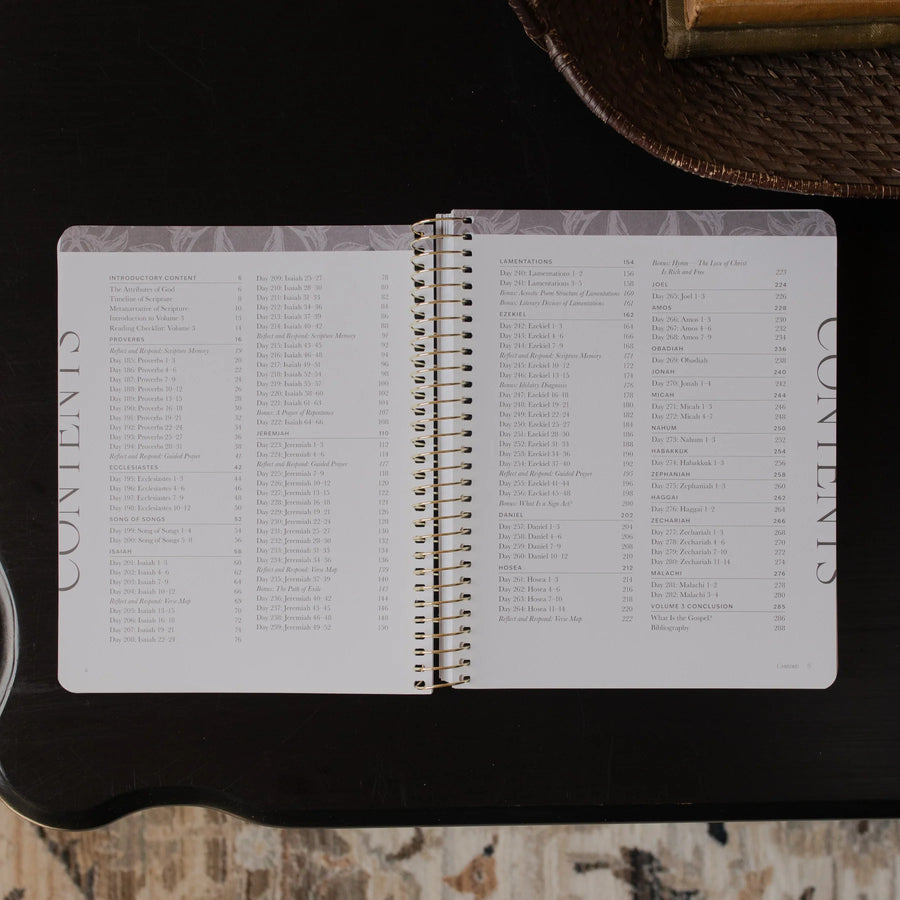 CONTENTS
INTRODUCTORY CONTENT 6
The Attributes of God 6
Timeline of Scripture 8
Metanarrative of Scripture 10
Introduction to Volume 3
Reading Checklist: Volume 3 14
PROVERBS 16
Reflect and Respond: Scripture Memory 19
Day 185: Proverbs 1–3 20
Day 186: Proverbs 4–6 22
Day 187: Proverbs 7–9 24
Day 188: Proverbs 10–12 26
Day 189: Proverbs 13–15 28
Day 190: Proverbs 16–18 30
Day 191: Proverbs 19–21 32
Day 192: Proverbs 22–24 34
Day 193: Proverbs 25–27 36
Day 194: Proverbs 28–31 38
Reflect and Respond: Guided Prayer 41
ECCLESIASTES 42
Day 195: Ecclesiastes 1–3 44
Day 196: Ecclesiastes 4–6 46
Day 197: Ecclesiastes 7–9 48
Day 198: Ecclesiastes 10–12 50
SONG OF SONGS 52
Day 199: Song of Songs 1–4 54
Day 200: Song of Songs 5–8 56
ISAIAH 58
Day 201: Isaiah 1–3 60
Day 202: Isaiah 4–6 62
Day 203: Isaiah 7–9 64
Day 204: Isaiah 10–12 66
Reflect and Respond: Verse Map 69
Day 205: Isaiah 13–15 70
Day 206: Isaiah 16–18 72
Day 207: Isaiah 19–21 74
Day 208: Isaiah 22–24 76
Day 209: Isaiah 25–27 78
Day 210: Isaiah 28–30 80
Day 211: Isaiah 31–33 82
Day 212: Isaiah 34–36 84
Day 213: Isaiah 37–39 86
Day 214: Isaiah 40–42 88
Reflect and Respond: Scripture Memory 91
Day 215: Isaiah 43–45 92
Day 216: Isaiah 46–48 94
Day 217: Isaiah 49–51 96
Day 218: Isaiah 52–54 98
Day 219: Isaiah 55–57 100
Day 220: Isaiah 58–60 102
Day 221: Isaiah 61–63 104
Bonus: A Prayer of Repentance 107
Day 222: Isaiah 64–66 108
JEREMIAH 110
Day 223: Jeremiah 1–3 112
Day 224: Jeremiah 4–6 114
Reflect and Respond: Guided Prayer 117
Day 225: Jeremiah 7–9 118
Day 226: Jeremiah 10–12 120
Day 227: Jeremiah 13–15 122
Day 228: Jeremiah 16–18 124
Day 229: Jeremiah 19–21 126
Day 230: Jeremiah 22–24 128
Day 231: Jeremiah 25–27 130
Day 232: Jeremiah 28–30 132
Day 233: Jeremiah 31–33 134
Day 234: Jeremiah 34–36 136
Reflect and Respond: Verse Map 139
Day 235: Jeremiah 37–39 140
Bonus: The Path of Exile 143
Day 236: Jeremiah 40–42 144
Day 237: Jeremiah 43–45 146
Day 238: Jeremiah 46–48 148
Day 239: Jeremiah 49–52 150
LAMENTATIONS 154
Day 240: Lamentations 1–2 156
Day 241: Lamentations 3–5 158
Bonus: Acrostic Poem Structure of Lamentations 160
Bonus: Literary Devices of Lamentations 161
EZEKIEL 162
Day 242: Ezekiel 1–3 164
Day 243: Ezekiel 4–6 166
Day 244: Ezekiel 7–9 168
Reflect and Respond: Scripture Memory 171
Day 245: Ezekiel 10–12 172
Day 246: Ezekiel 13–15 174
Bonus: Idolatry Diagnosis 176
Day 247: Ezekiel 16–18 178
Day 248: Ezekiel 19–21 180
Day 249: Ezekiel 22–24 182
Day 250: Ezekiel 25–27 184
Day 251: Ezekiel 28–30 186
Day 252: Ezekiel 31–33 188
Day 253: Ezekiel 34–36 190
Day 254: Ezekiel 37–40 192
Reflect and Respond: Guided Prayer 195
Day 255: Ezekiel 41–44 196
Day 256: Ezekiel 45–48 198
Bonus: What Is a Sign Act? 200
DANIEL 202
Day 257: Daniel 1–3 204
Day 258: Daniel 4–6 206
Day 259: Daniel 7–9 208
Day 260: Daniel 10–12 210
HOSEA 212
Day 261: Hosea 1–3 214
Day 262: Hosea 4–6 216
Day 263: Hosea 7–10 218
Day 264: Hosea 11–14 220
Reflect and Respond: Verse Map 222
Bonus: Hymn — The Love of Christ
Is Rich and Free 223
JOEL 224
Day 265: Joel 1–3 226
AMOS 228
Day 266: Amos 1–3 230
Day 267: Amos 4–6 232
Day 268: Amos 7–9 234
OBADIAH 236
Day 269: Obadiah 238
JONAH 240
Day 270: Jonah 1–4 242
MICAH 244
Day 271: Micah 1–3 246
Day 272: Micah 4–7 248
NAHUM 250
Day 273: Nahum 1–3 252
HABAKKUK 254
Day 274: Habakkuk 1–3 256
ZEPHANIAH 258
Day 275: Zephaniah 1–3 260
HAGGAI 262
Day 276: Haggai 1–2 264
ZECHARIAH 266
Day 277: Zechariah 1–3 268
Day 278: Zechariah 4–6 270
Day 279: Zechariah 7–10 272
Day 280: Zechariah 11–14 274
MALACHI 276
Day 281: Malachi 1–2 278
Day 282: Malachi 3–4 280
VOLUME 3 CONCLUSION 285
What Is the Gospel? 286
Bibliography 288
CONTENTS
Contents 5